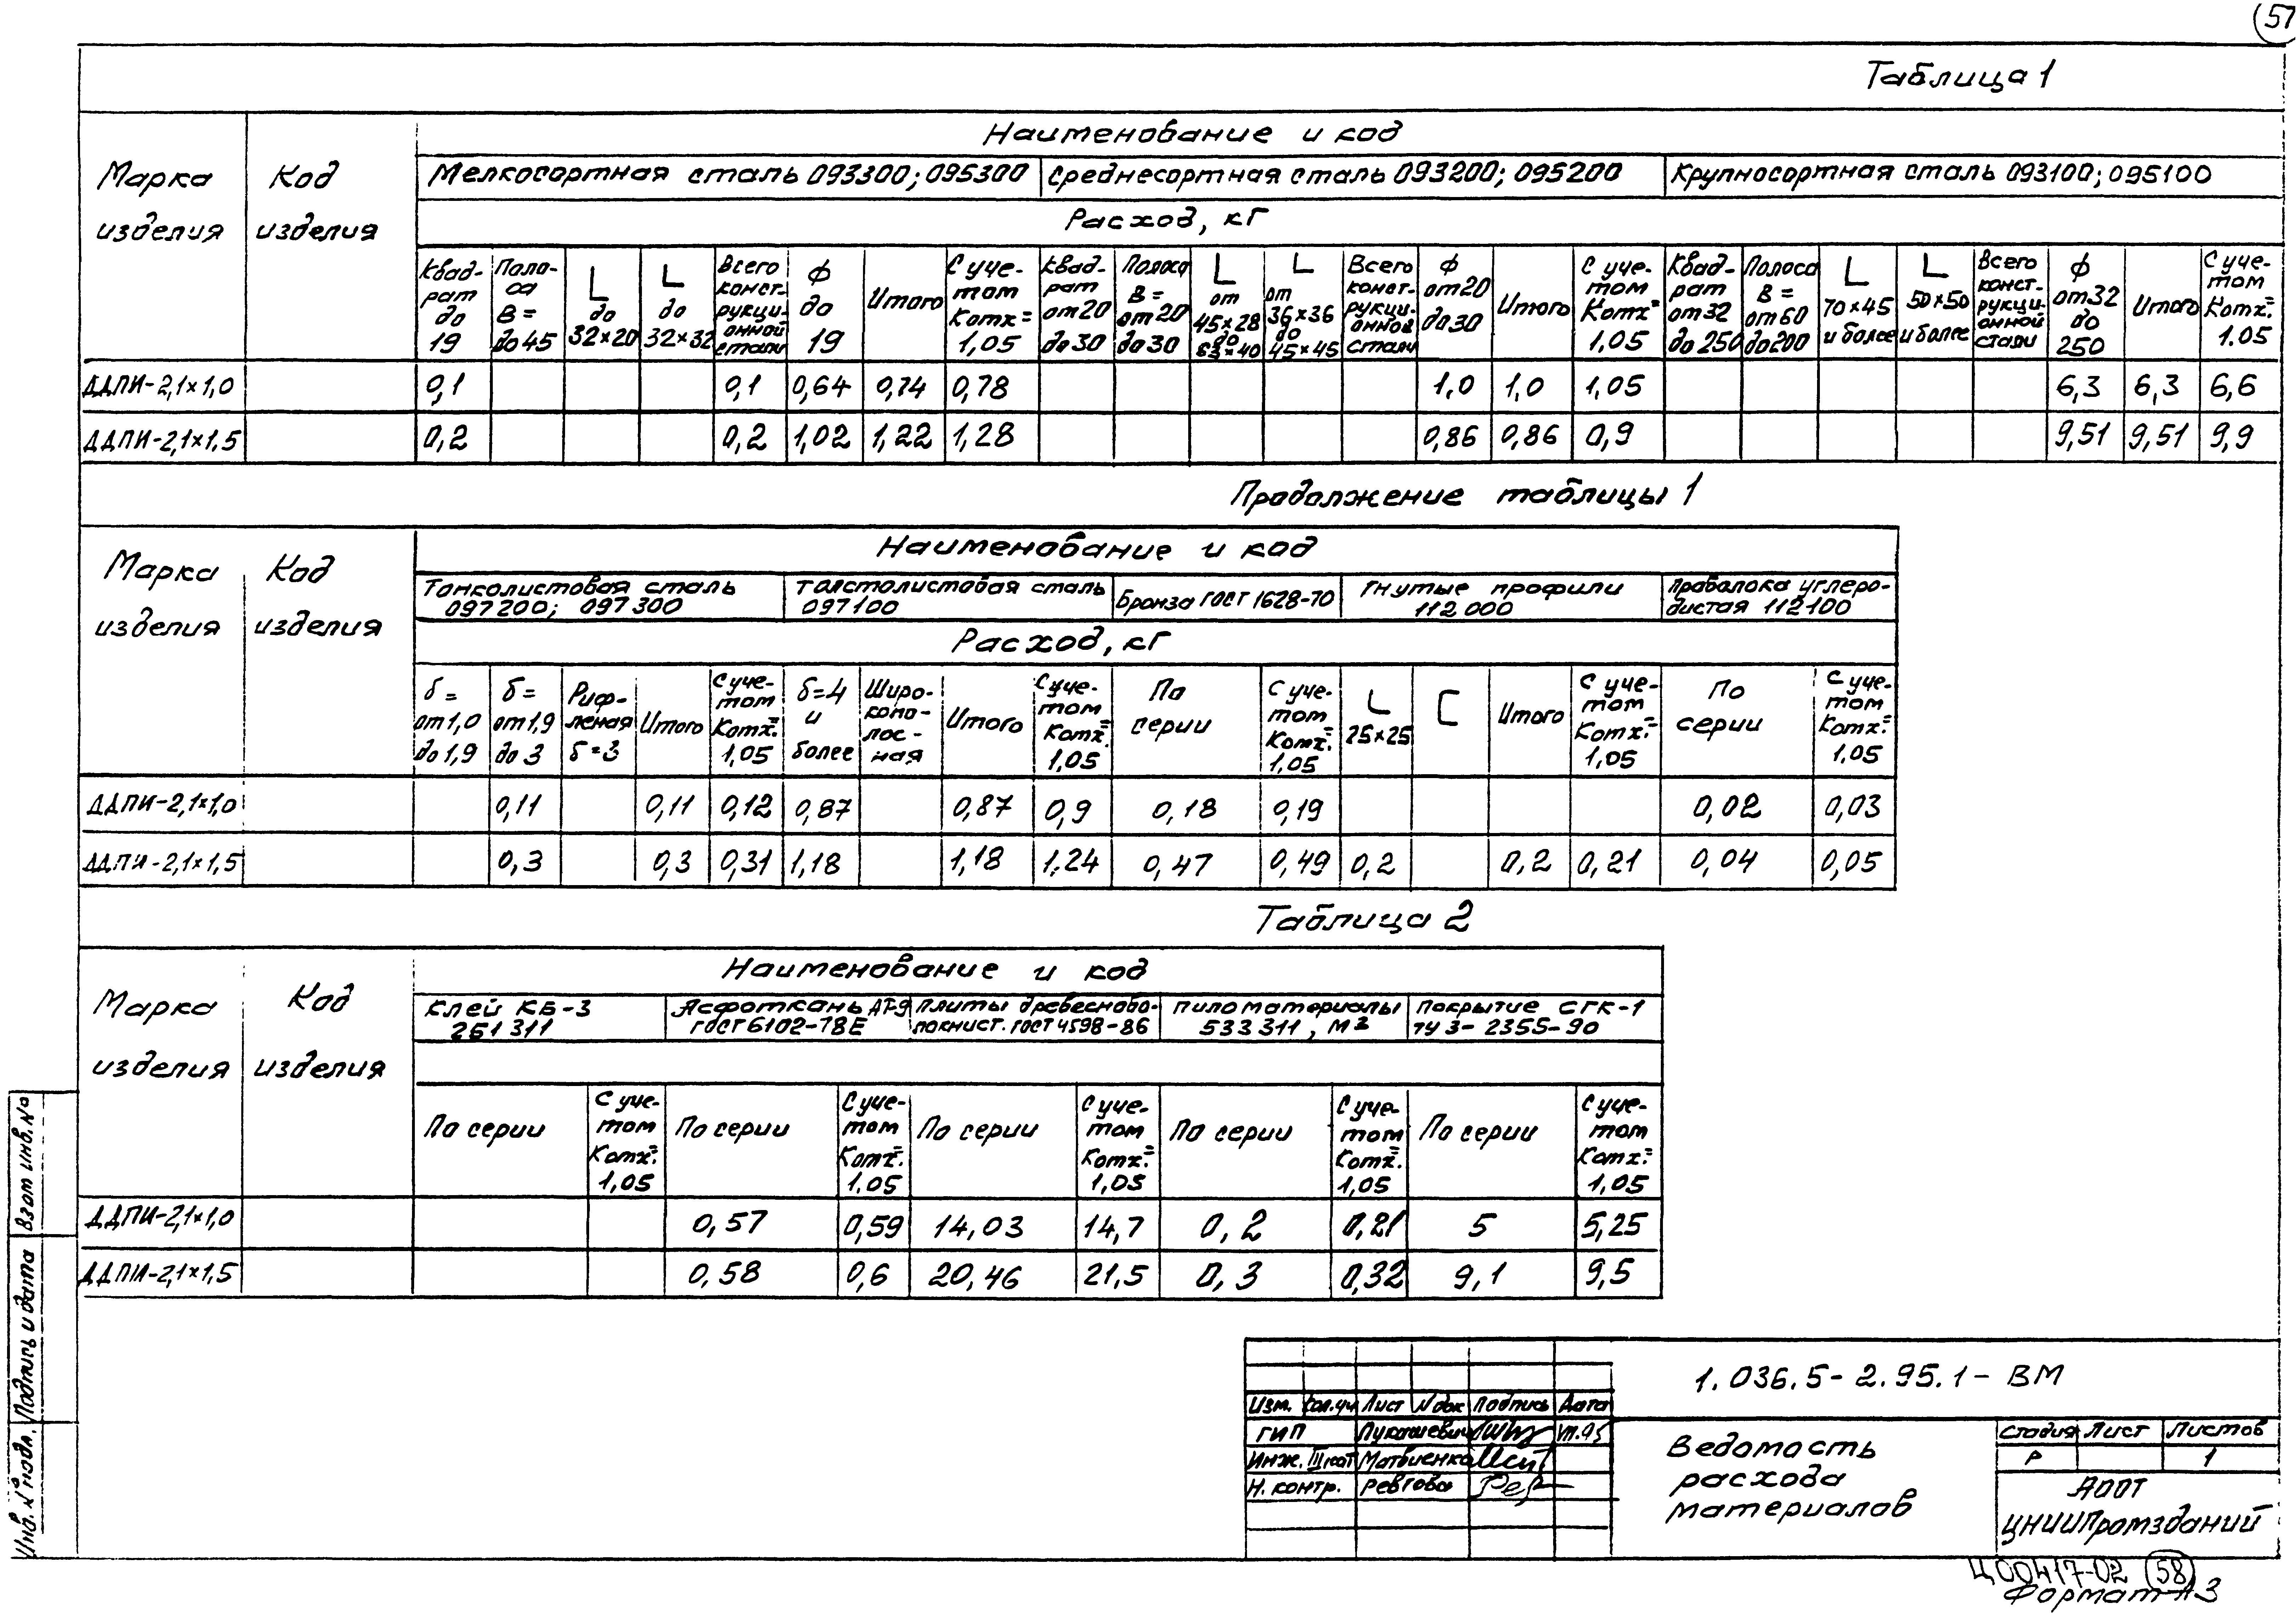 57
Таблица 1
Марка изделия | Код изделия | Наименование и код
Мелкосортная сталь 093300; 095300 | Среднесортная сталь 093200; 095200 | Крупносортная сталь 093100; 095100
Расход, кг
Квадрат до 19 | Полоса В= до 45 | L до 32×20 | L до 32×32 | Всего конструкционной стали | ф до 19 | Итого | С учетом Котх=1,05 | Квадрат от 20 до 30 | Полоса В= от 20 до 30 | L от 45×28 до 63×40 | L от 36×36 до 45×45 | Всего конструкционной стали | ф от 20 до 30 | Итого | С учетом Котх=1,05 | Квадрат от 32 до 250 | Полоса В= от 60 до 200 | L 70×45 и более | L 50×50 и более | Всего конструкционной стали | ф от 32 до 250 | Итого | С учетом Котх.=1.05
ДДПИ-2,1×1,0 0,1 0,1 0,64 0,74 0,78 1,0 1,0 1,05 6,3 6,3 6,6
ДДПИ-2,1×1,5 0,2 0,2 1,02 1,22 1,28 0,86 0,86 0,9 9,51 9,51 9,9
Продолжение таблицы 1
Марка изделия | Код изделия | Наименование и код
Тонколистовая сталь 097200; 097300 | Толстолистовая сталь 097100 | Бронза ГОСТ 1628-70 | Гнутые профили 112000 | Проволока углеродистая 112100
Расход, кг
δ= от 1,0 до 1,9 | δ= от 1,9 до 3 | Рифленая δ=3 | Итого | С учетом Котх.=1,05 | δ=4 и более | Широкополосная | Итого | С учетом Котх.=1,05 | По серии | С учетом Котх.=1,05 | L 25×25 | [ | Итого | С учетом Котх.=1,05 | По серии | С учетом Котх.=1,05
ДДПИ-2,1×1,0 0,11 0,11 0,12 0,87 0,87 0,9 0,18 0,19 0,02 0,03
ДДПИ-2,1×1,5 0,3 0,3 0,31 1,18 1,18 1,24 0,47 0,49 0,2 0,2 0,21 0,04 0,05
Таблица 2
Марка изделия | Код изделия | Наименование и код
Клей КБ-3 251311 | Асфоткань АТ-9 ГОСТ 6102-78Е | Плиты древесноволокнист. ГОСТ 4598-86 | Пиломатериалы 533311, м3 | Покрытие СГК-1 ТУ 3-2355-90
По серии | С учетом Котх.=1,05 | По серии | С учетом Котх.=1,05 | По серии | С учетом Котх.=1,05 | По серии | С учетом Котх.=1,05 | По серии | С учетом Котх.=1,05
ДДПИ-2,1×1,0 0,57 0,59 14,03 14,7 0,2 0,21 5 5,25
ДДПИ-2,1×1,5 0,58 0,6 20,46 21,5 0,3 0,32 9,1 9,5
Взам инв. №
Подпись и дата
Инв. № подл.
1.036.5-2.95.1-ВМ
Изм. Кол.уч Лист N док Подпись Дата
ГИП Лукашевич
Инж. III кат Матвиенко
Н. контр. Ревгова
Ведомость расхода материалов
Стадия Лист Листов
Р 1
АООТ
ЦНИИПромзданий
Ц00417-02 58
Формат А3